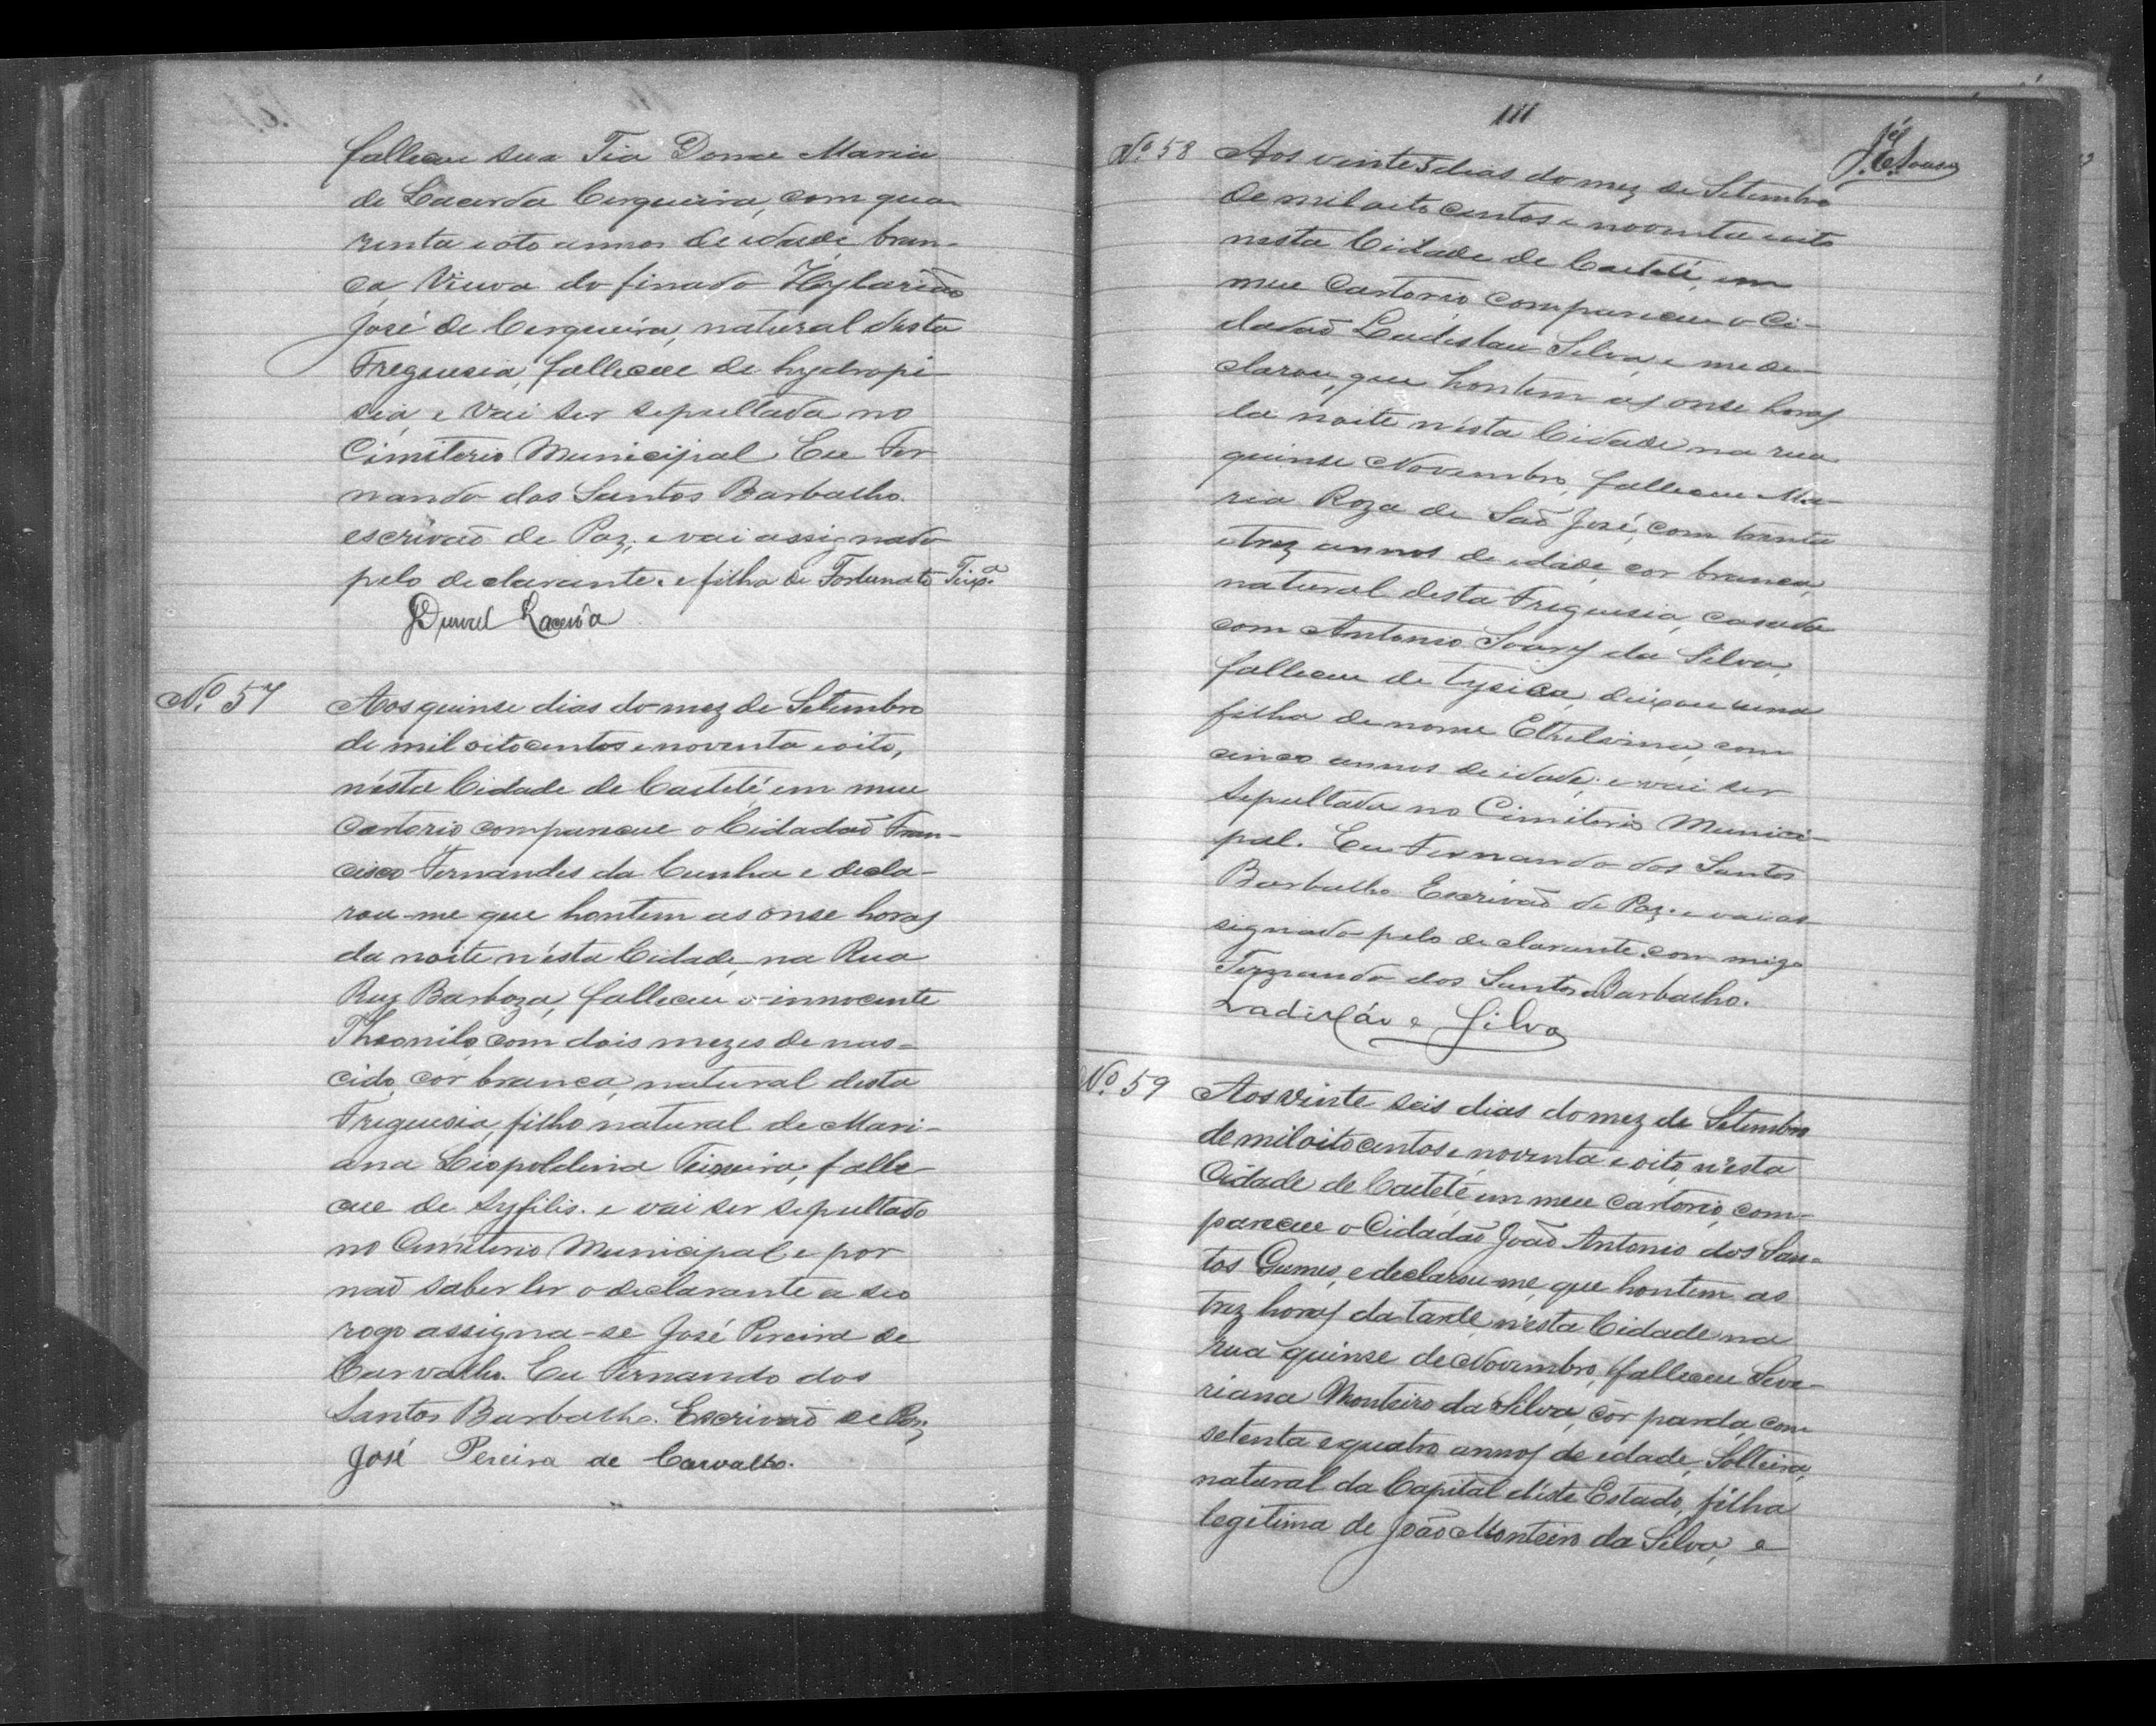 falleceu sua Tia Dona Maria
de Lacerda Cerqueira, com qua-
renta e oito annos de idade, bran-
ca, Viuva do finado Hylarião
José de Cerqueira, natural desta
Freguesia, falleceu de hydropi-
sia, e vai ser sepultada no
Cimiterio Municipal. Eu Fer
nando dos Santos Barbalho
escrivaõ de Paz, e vai assignado
pelo declarante. e filha de Fortunato Teixª.
Durval Lacerda
Nº. 57
Aos quinse dias do mez de Setembro
de mil oito centos e noventa e oito,
n'ésta Cidade de Caeteté em meu
Cartorio compareceu o Cidadaõ Fran-
cisco Fernandes da Cunha e decla-
rou-me que hontem as onse horas
da noite n'ésta Cidade, na Rua
Ruy Barboza, falleceu o innocente
Theonilo, com dois mezes de nas-
cido, cor branca, natural desta
Freguesia, filho natural de Mari-
ana Leopoldina Teixeira, falle-
ceu de Syfilis. e vai ser sepultado
no Cimiterio Municipal e por
naõ saber ler o declarante a seo
rogo assigna-se José Pereira de
Carvalho. Eu Fernando dos
Santos Barbalho. Escrivaõ de Paz
José Pereira de Carvalho.
111
J. C. Sousa
Nº. 58
Aos vinte 5 dias do mez de Setembro
de mil oito centos e noventa e oito
nesta Cidade de Caeteté, em
meu Cartorio compareceu o Ci-
dadaõ Ladislau Silva, e me de-
clarou, que hontem as onse horas
da noite n'ésta Cidade na rua
quinse Novembro, falleceu Ma-
ria Roza de Saõ José, com trinta
e trez annos de idade, cor branca,
natural desta Freguesia, casada
com Antonio Soares da Silva,
falleceu de Tysica, deixou uma
filha de nome Ethelvina, com
cinco annos de idade, e vai ser
sepultada no Cimiterio Munici-
pal. Eu Fernando dos Santos
Barbalho Escrivaõ de Paz. e vai as-
signado pelo declarante, com migo
Fernando dos Santos Barbalho.
Ladisláo e Silva
Nº. 59
Aos vinte seis dias do mez de Setembro
de mil oito centos e noventa e oito, n'esta
Cidade de Caeteté em meu Cartorio, com-
pareceu o Cidadão João Antonio dos San-
tos Gumes, e declarou-me, que hontem as
trez horas da tarde, n'esta Cidade na
rua quinse de Novembro, falleceu Seve-
riana Monteiro da Silva, côr parda, com
setenta e quatro annos de idade, Solteira,
natural da Capital d'éste Estado, filha
legitima de João Monteiro da Silva, e